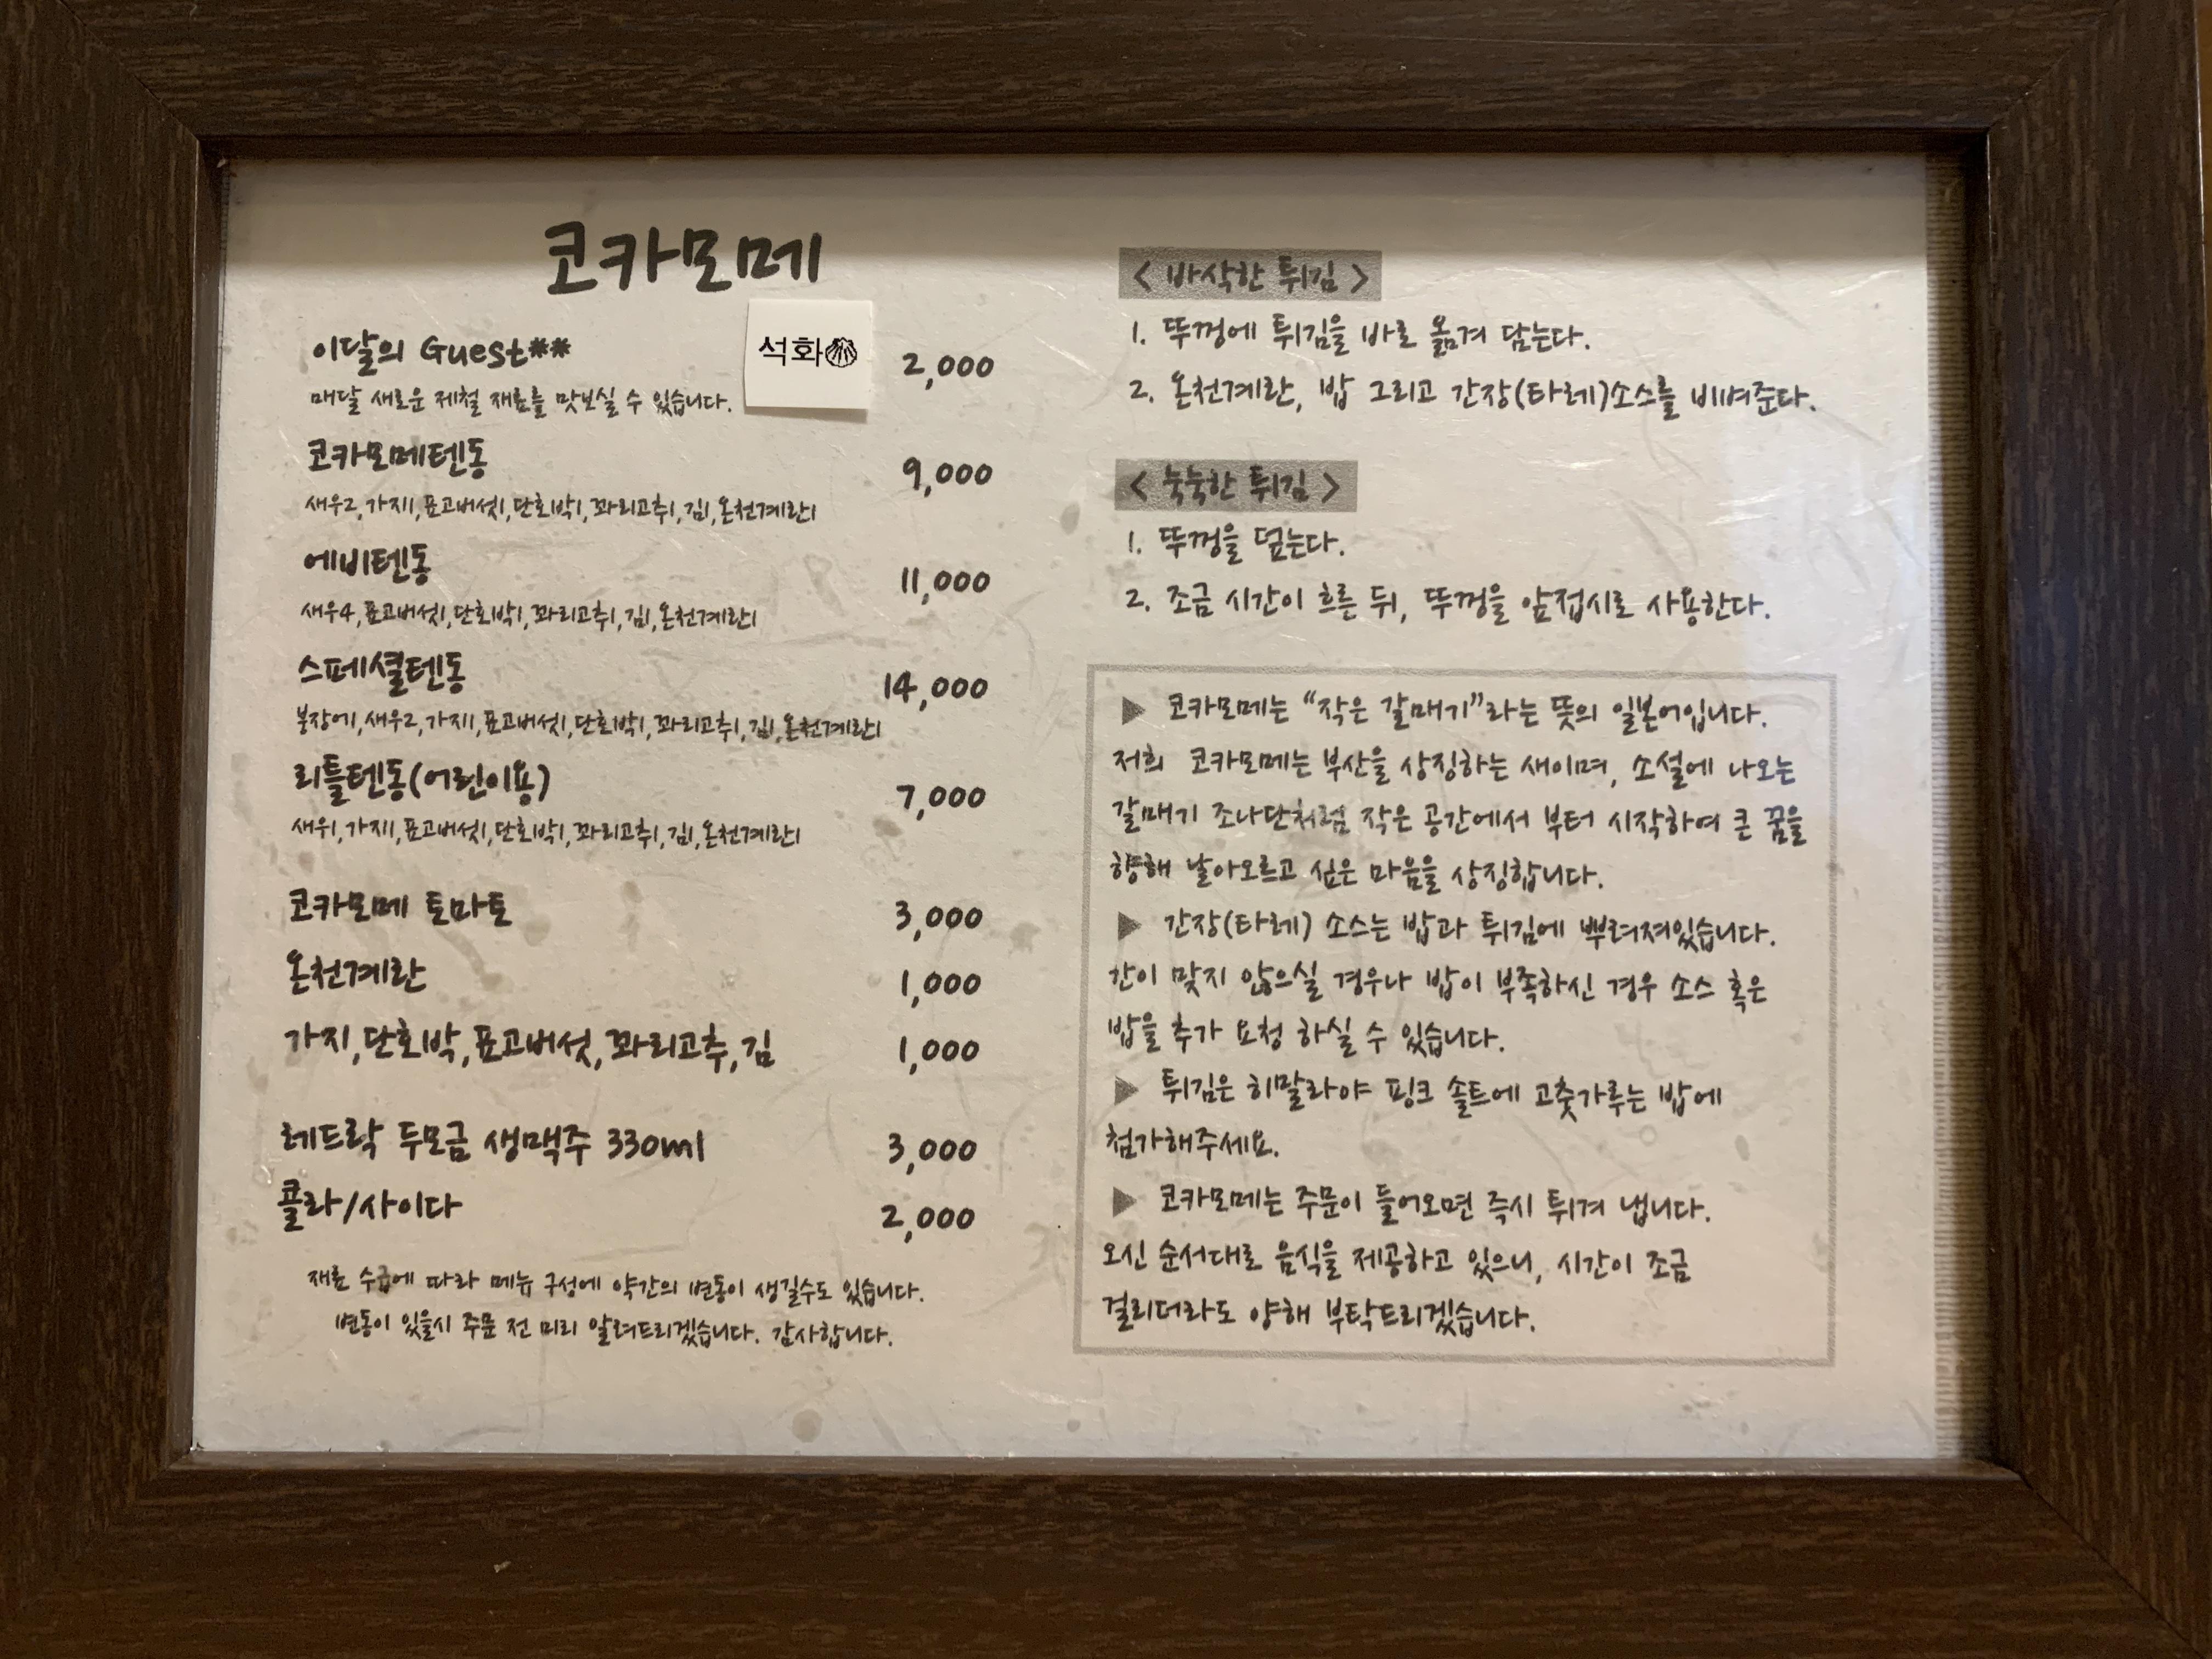 코카모메
이달의 Guest** 석화 2,000
매달 새로운 제철 재료를 맛보실 수 있습니다.
코카모메텐동 9,000
새우2,가지1,표고버섯1,단호박1,꽈리고추1,김1,온천계란1
에비텐동 11,000
새우4,표고버섯1,단호박1,꽈리고추1,김1,온천계란1
스페셜텐동 14,000
붕장어1,새우2,가지1,표고버섯1,단호박1,꽈리고추1,김1,온천계란1
리틀텐동(어린이용) 7,000
새우1,가지1,표고버섯1,단호박1,꽈리고추1,김1,온천계란1
코카모메 토마토 3,000
온천계란 1,000
가지,단호박,표고버섯,꽈리고추,김 1,000
레드락 두모금 생맥주 330ml 3,000
콜라/사이다 2,000
재료 수급에 따라 메뉴 구성에 약간의 변동이 생길수도 있습니다.
변동이 있을시 주문 전 미리 알려드리겠습니다. 감사합니다.
< 바삭한 튀김 >
1. 뚜껑에 튀김을 바로 옮겨 담는다.
2. 온천계란, 밥 그리고 간장(타레)소스를 비벼준다.
< 눅눅한 튀김 >
1. 뚜껑을 덮는다.
2. 조금 시간이 흐른 뒤, 뚜껑을 앞접시로 사용한다.
▶ 코카모메는 “작은 갈매기”라는 뜻의 일본어입니다.
저희 코카모메는 부산을 상징하는 새이며, 소설에 나오는
갈매기 조나단처럼 작은 공간에서 부터 시작하여 큰 꿈을
향해 날아오르고 싶은 마음을 상징합니다.
▶ 간장(타레) 소스는 밥과 튀김에 뿌려져있습니다.
간이 맞지 않으실 경우나 밥이 부족하신 경우 소스 혹은
밥을 추가 요청 하실 수 있습니다.
▶ 튀김은 히말라야 핑크 솔트에 고춧가루는 밥에
첨가해주세요.
▶ 코카모메는 주문이 들어오면 즉시 튀겨 냅니다.
오신 순서대로 음식을 제공하고 있으니, 시간이 조금
걸리더라도 양해 부탁드리겠습니다.